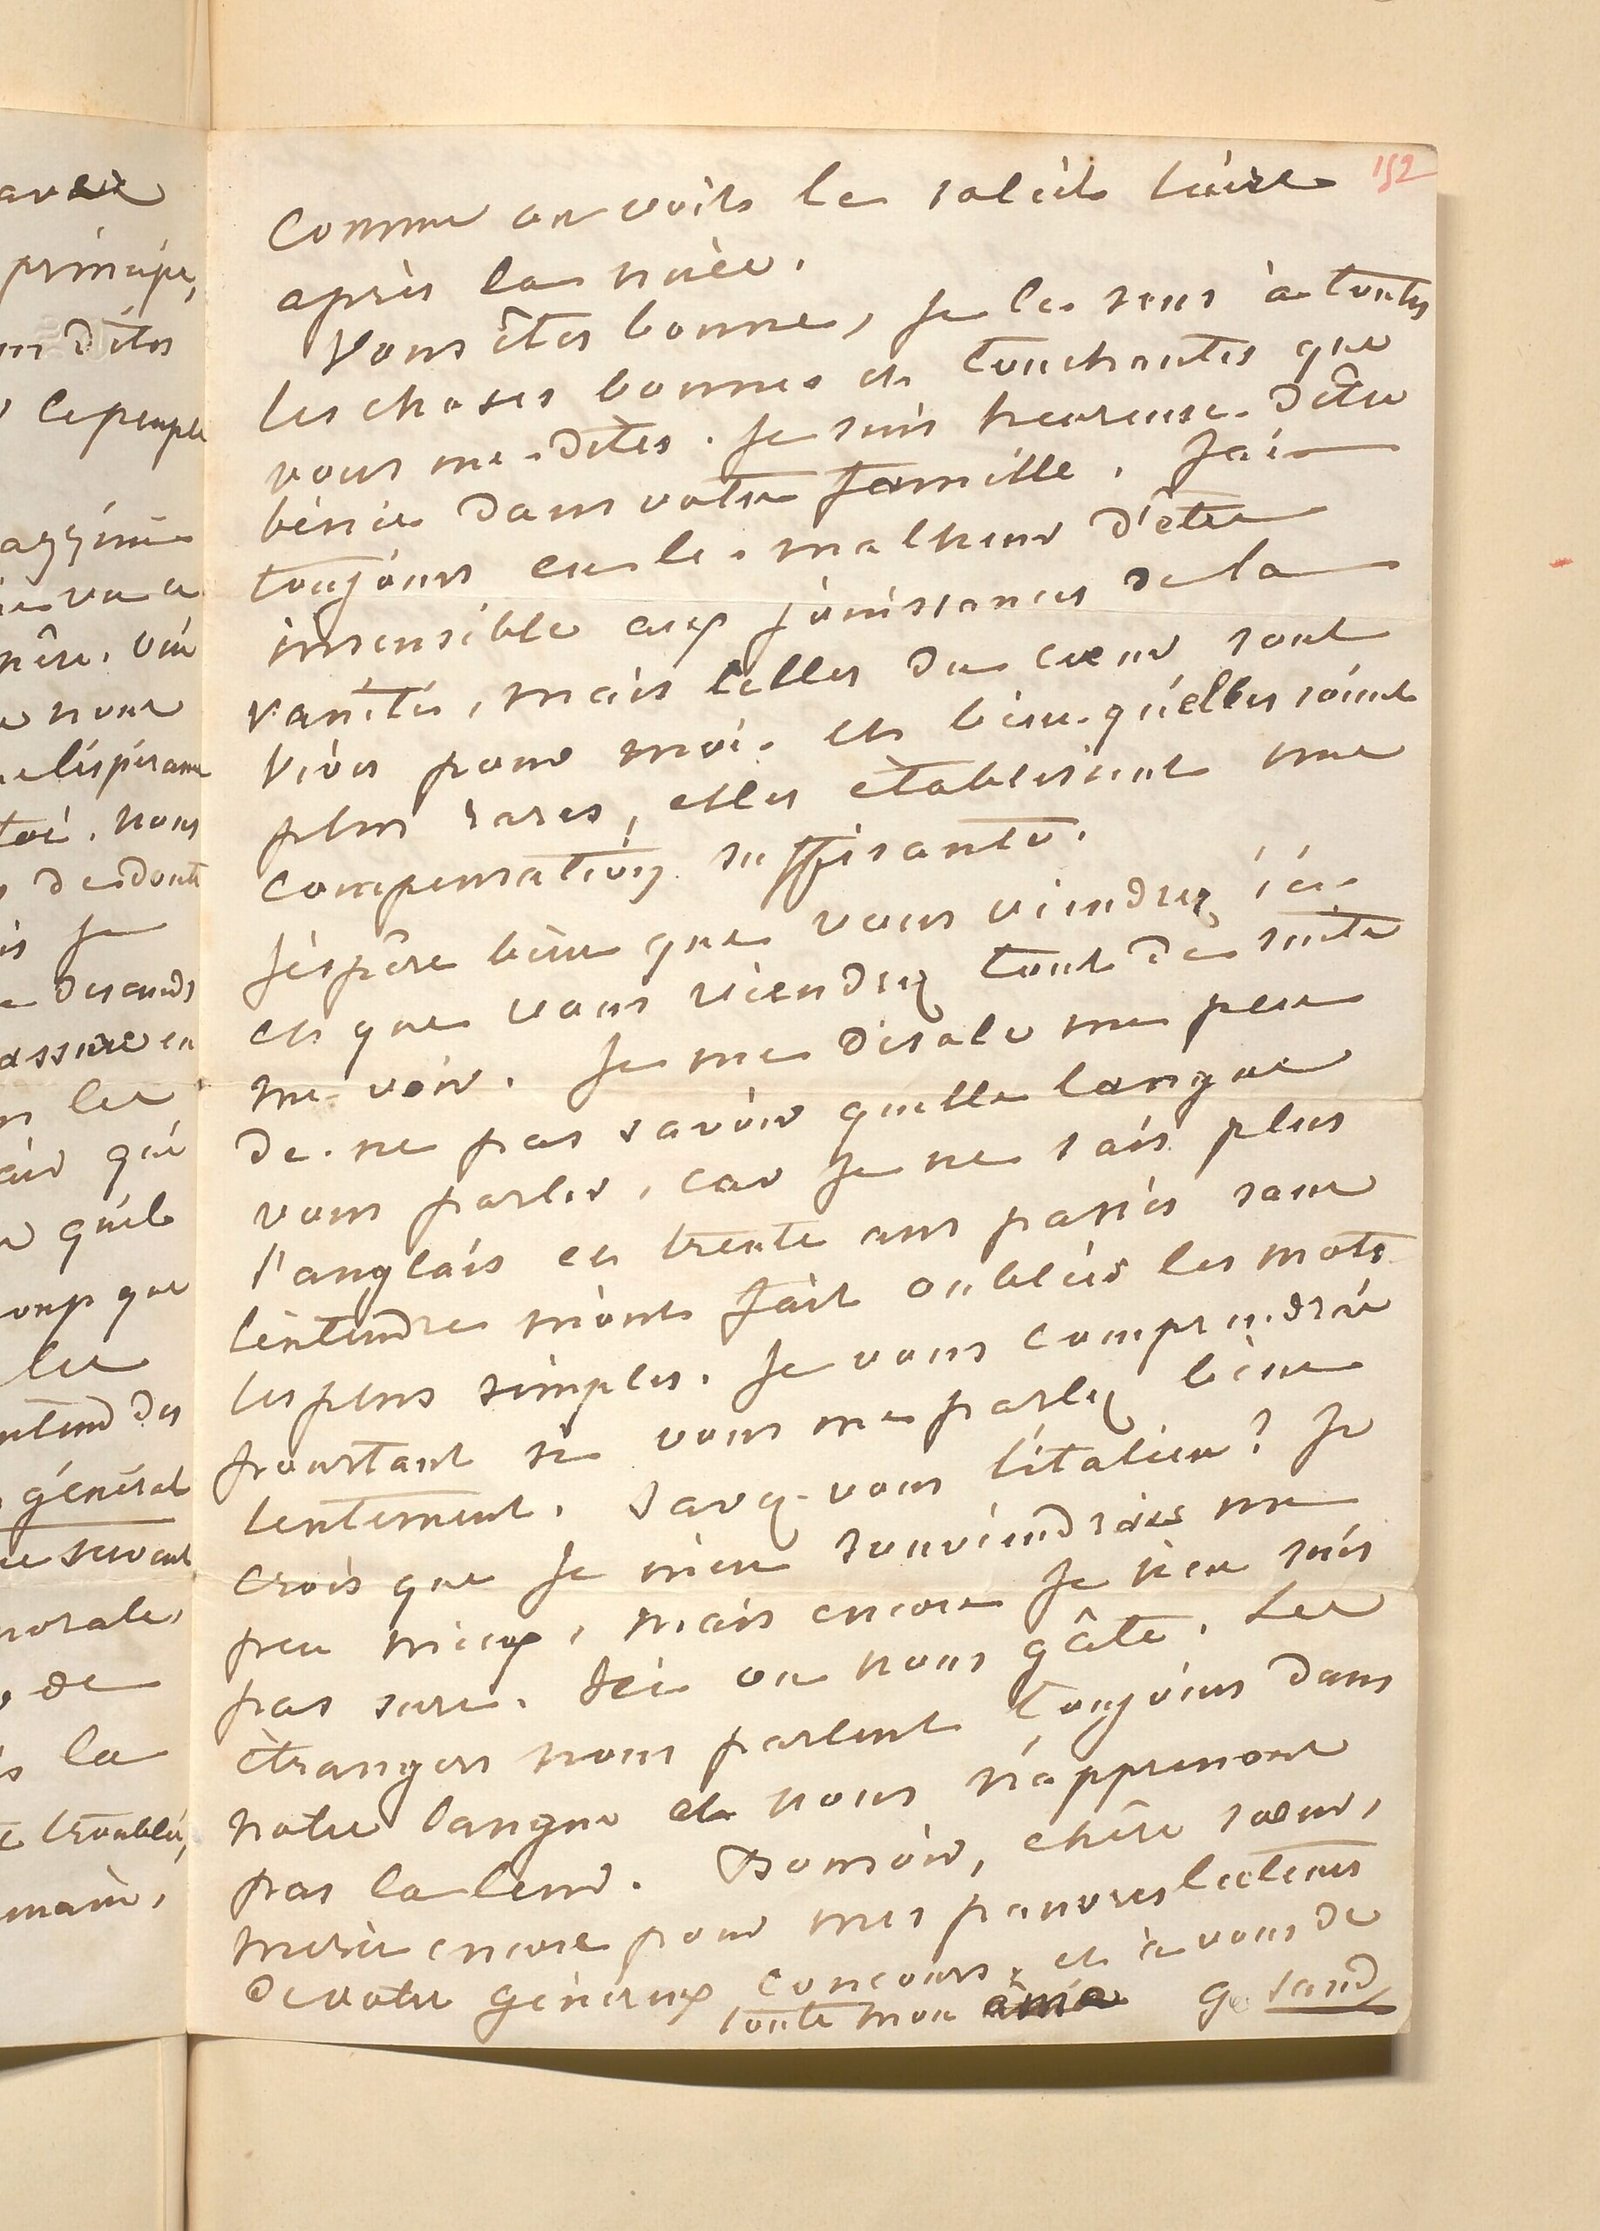 avoir
principe,
dites
le peuple
a vu ce
mère. Une
nous
l'espérance
toi. nous
de doute
is je
descends
assure en
les
qui
qu'il
coup que
les
entend des
général
servent
morale,
de
la
troublée,
main,
152
Comme on voit le soleil luire
après la nuée.
Vous êtes bonne, je le sens à toutes
les choses bonnes et touchantes que
vous me dites. Je suis heureuse d'être
bénie dans votre famille. J'ai
toujours eu le malheur d'être
insensible aux jouissances de la
vanité, mais celles du cœur sont
vives pour moi. et bien qu'elles soient
plus rares, elles établissent une
compensation suffisante.
J'espère bien que vous viendrez ici
et que vous viendrez tout de suite
me voir. Je me désole un peu
de ne pas savoir quelle langue
vous parler, car je ne sais plus
l'anglais et trente ans passés sans
l'entendre m'ont fait oublier les mots
les plus simples. Je vous comprendrai
pourtant si vous me parlez bien
lentement. Savez-vous l'italien? Je
crois que je m'en souviendrais un
peu mieux, mais encore je n'en suis
pas sure. Ici on nous gâte. Les
étrangers nous parlent toujours dans
notre langue et nous n'apprenons
pas la leur. Bonsoir, chère sœur,
merci encore pour mes pauvres lecteurs
de votre généreux concours, et à vous de
toute mon âme G. Sand